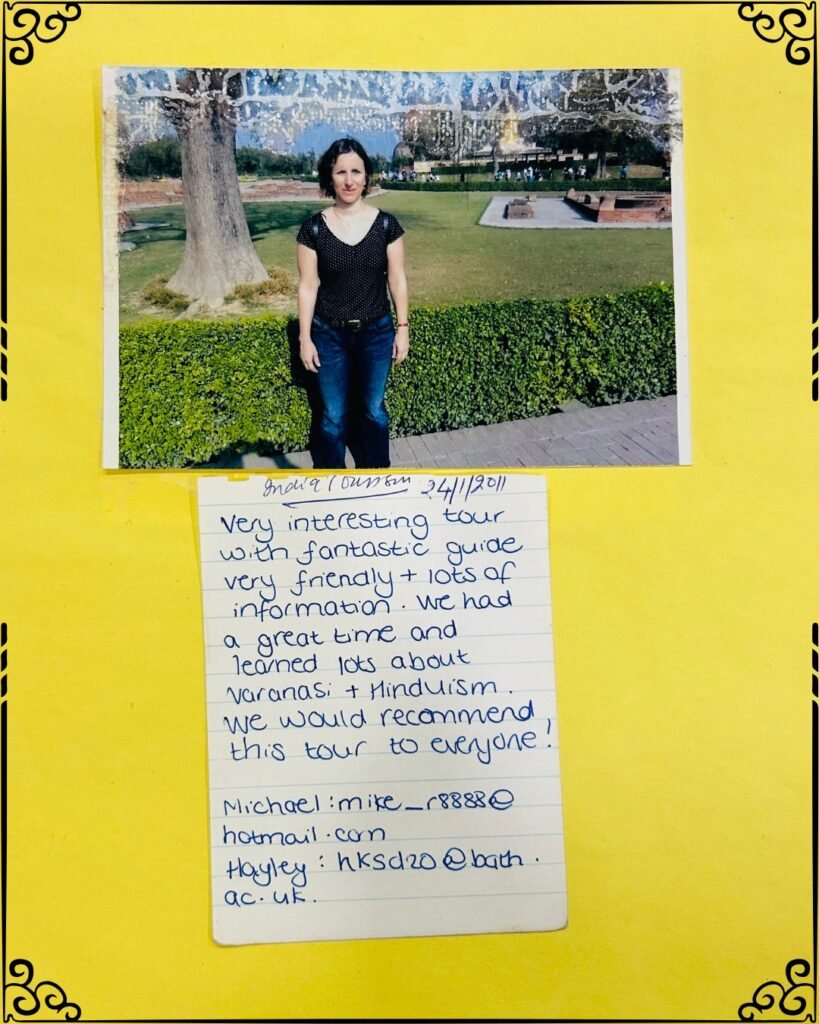 India Tourism 24/1/2011
Very interesting tour
with fantastic guide
very friendly + lots of
information. We had
a great time and
learned lots about
Varanasi + Hinduism.
We would recommend
this tour to everyone!
Michael: mike_r8888@
hotmail.com
Hayley: hksd20@bath.
ac.uk.